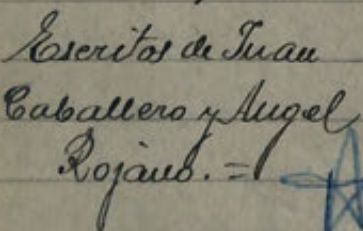 Escritos de Juan
Caballero y Angel
Rojano. =